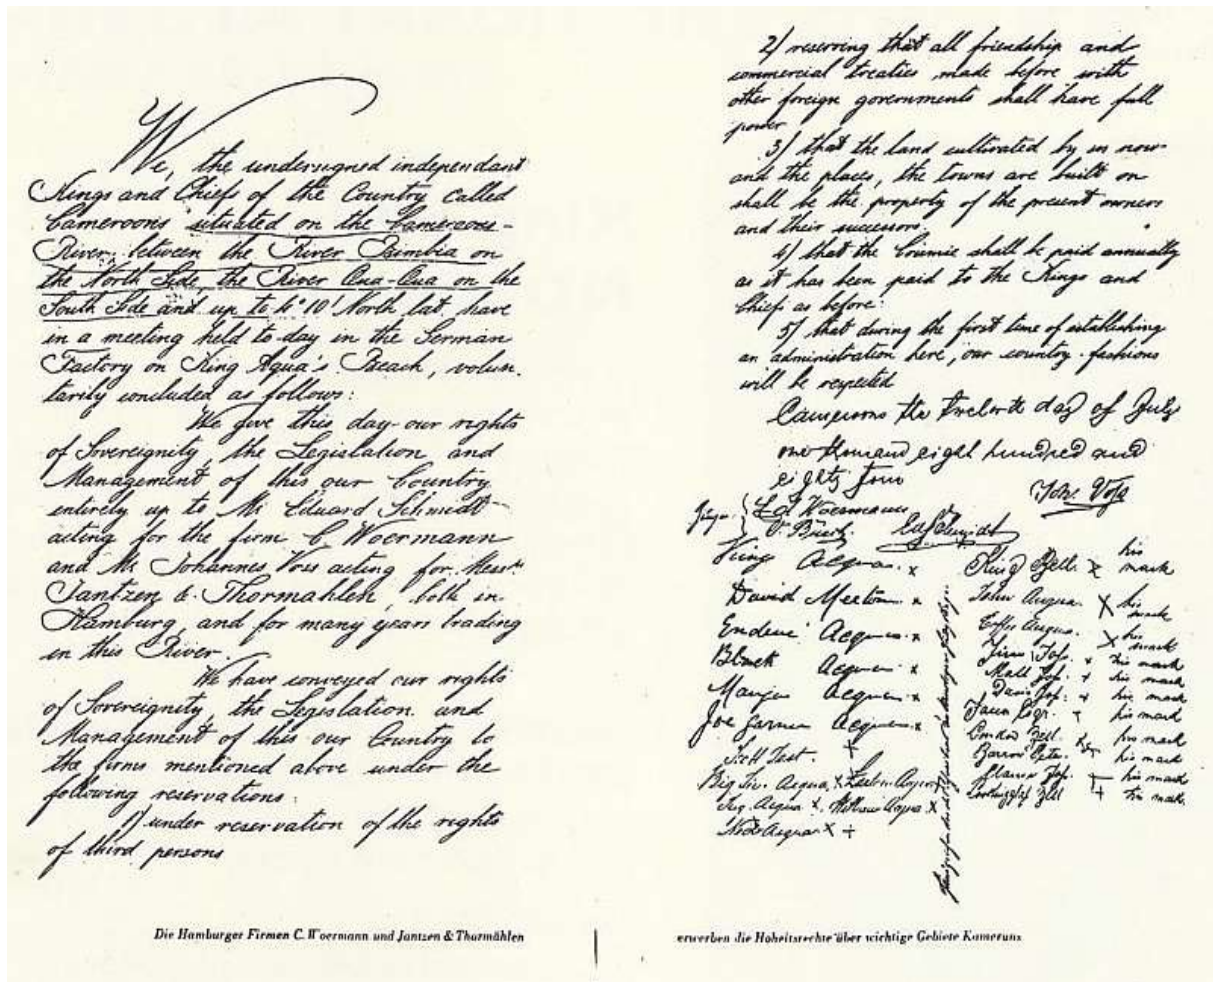 We, the undersigned independant
Kings and Chiefs of the Country called
Cameroons situated on the Cameroons-
River, between the River Bimbia on
the North Side, the River Qua-Qua on the
South Side and up to 4° 10' North lat, have
in a meeting held to-day in the German
Factory on King Aqua's Beach, volun-
tarily concluded as follows:
We give this day our rights
of Sovereignity, the Legislation and
Management of this our Country
entirely up to Mr Eduard Schmidt
acting for the firm C. Woermann
and Mr Johannes Voss acting for Messrs
Jantzen & Thormählen, both in
Hamburg, and for many years trading
in this River.
We have conveyed our rights
of Sovereignity, the Legislation and
Management of this our Country to
the firms mentioned above under the
following reservations:
1) under reservation of the rights
of third persons
2) reserving that all friendship and
commercial treaties made before with
other foreign governments shall have full
power
3) that the land cultivated by us now
and the places, the towns are built on
shall be the property of the present owners
and their successors.
4) that the Coumie shall be paid annually
as it has been paid to the Kings and
Chiefs as before.
5) that during the first time of establishing
an administration here, our country fashions
will be respected
Cameroons the twelvth day of July
one thousand eight hundred and
eighty four
Joh. Voss
Woermann
Ed. Schmidt
King Acqua. x
King Bell. x his mark
David Meetom x
John Acqua. X his mark
Endene Acqua x
his mark
Black Acqua x
Jim Joss. x his mark
Manga Acqua x
Matt Joss. + his mark
Joe Garner Acqua x
David Joss. + his mark
+ his mark
London Bell. his mark
Big Jim. Acqua, X
his mark
Joss. + his mark
Acqua X. William Acqua X
Lookingglass Bell + his mark
Ned Acqua X +
Die Hamburger Firmen C. Woermann und Jantzen & Thormählen
erwerben die Hoheitsrechte über wichtige Gebiete Kameruns